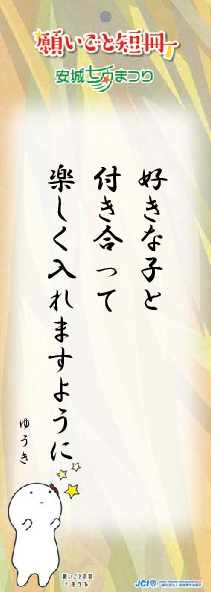 願いごと短冊
安城七夕まつり
好きな子と
付き合って
楽しく入れますように
ゆうき
願いごと広報
JCI